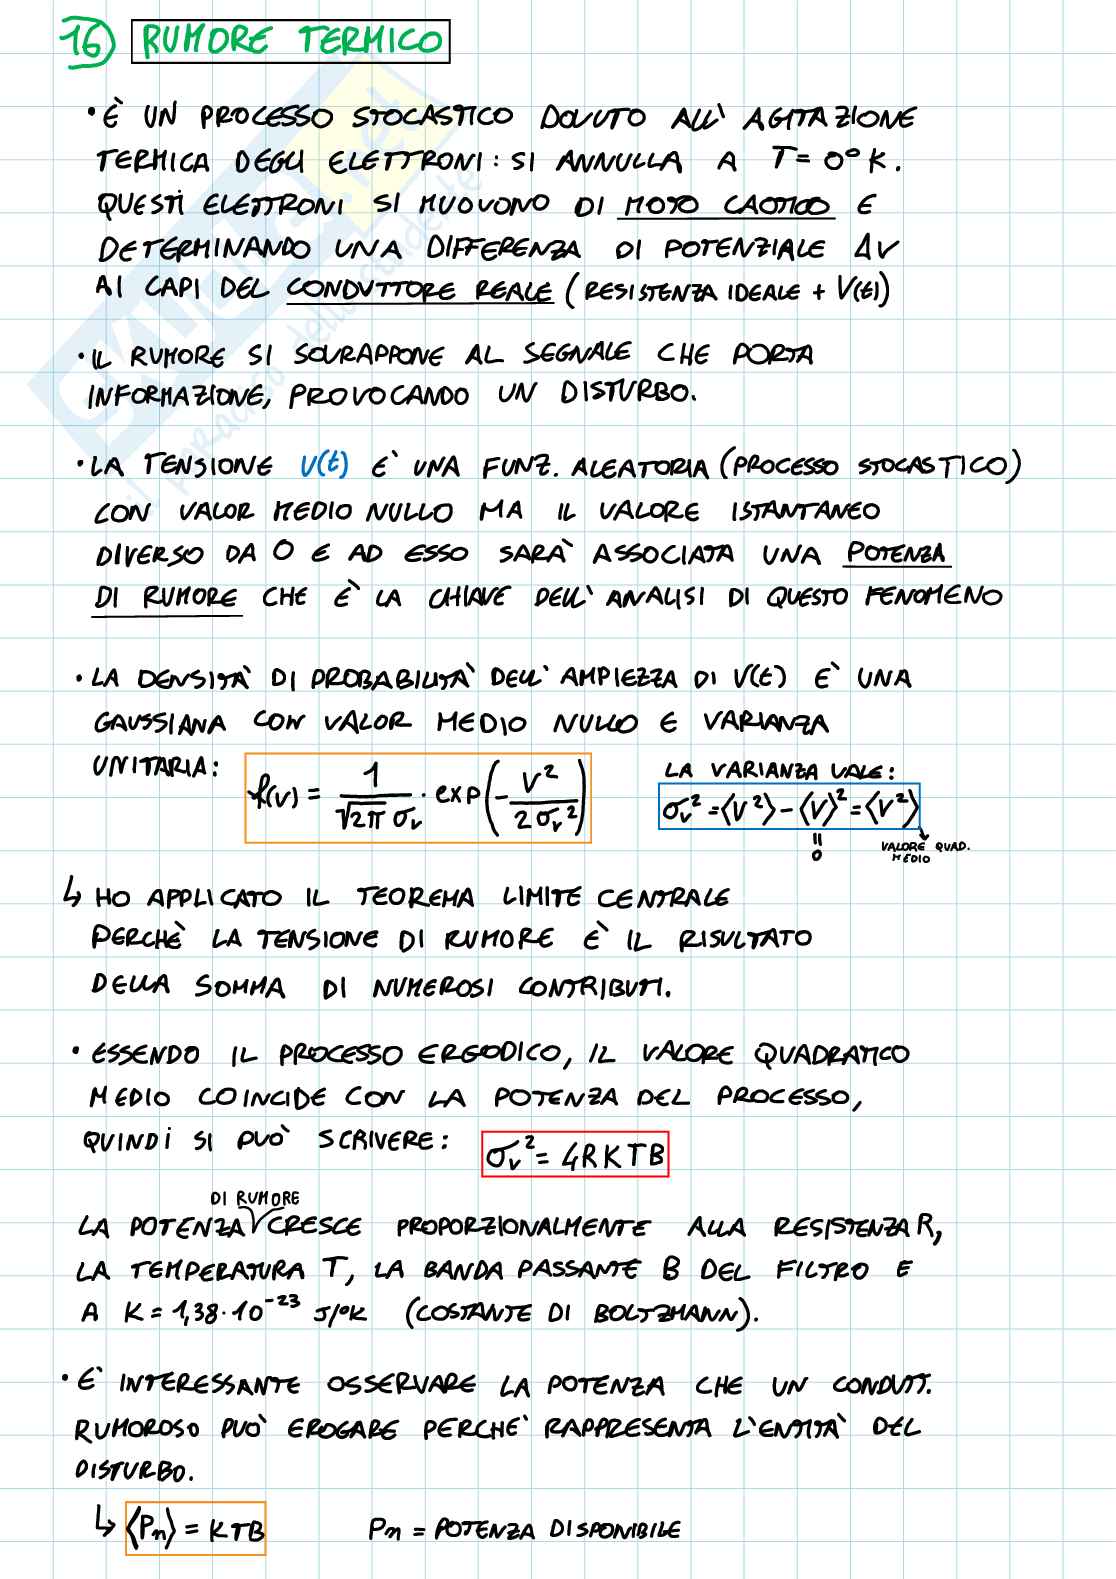 16 RUMORE TERMICO
• È UN PROCESSO STOCASTICO DOVUTO ALL' AGITAZIONE
TERMICA DEGLI ELETTRONI: SI ANNULLA A T = 0° K.
QUESTI ELETTRONI SI MUOVONO DI MOTO CAOTICO E
DETERMINANDO UNA DIFFERENZA DI POTENZIALE ΔV
AI CAPI DEL CONDUTTORE REALE (RESISTENZA IDEALE + V(t))
• IL RUMORE SI SOVRAPPONE AL SEGNALE CHE PORTA
INFORMAZIONE, PROVOCANDO UN DISTURBO.
• LA TENSIONE V(t) E' UNA FUNZ. ALEATORIA (PROCESSO STOCASTICO)
CON VALOR MEDIO NULLO MA IL VALORE ISTANTANEO
DIVERSO DA 0 E AD ESSO SARÀ ASSOCIATA UNA POTENZA
DI RUMORE CHE È LA CHIAVE DELL' ANALISI DI QUESTO FENOMENO
• LA DENSITÀ DI PROBABILITÀ DELL' AMPIEZZA DI V(t) E' UNA
GAUSSIANA CON VALOR MEDIO NULLO E VARIANZA
UNITARIA: f(v) = 1/(√2π σᵥ) · exp(-V²/(2σᵥ²))
LA VARIANZA VALE:
σᵥ² = ⟨V²⟩ - ⟨V⟩² = ⟨V²⟩
= 0
VALORE QUAD.
MEDIO
↳ HO APPLICATO IL TEOREMA LIMITE CENTRALE
PERCHÈ LA TENSIONE DI RUMORE È IL RISULTATO
DELLA SOMMA DI NUMEROSI CONTRIBUTI.
• ESSENDO IL PROCESSO ERGODICO, IL VALORE QUADRATICO
MEDIO COINCIDE CON LA POTENZA DEL PROCESSO,
QUINDI SI PUÒ SCRIVERE: σᵥ² = 4RKTB
DI RUMORE
LA POTENZA CRESCE PROPORZIONALMENTE ALLA RESISTENZA R,
LA TEMPERATURA T, LA BANDA PASSANTE B DEL FILTRO E
A K = 1,38·10⁻²³ J/°K (COSTANTE DI BOLTZMANN).
• E' INTERESSANTE OSSERVARE LA POTENZA CHE UN CONDUTT.
RUMOROSO PUÒ EROGARE PERCHE' RAPPRESENTA L'ENTITÀ DEL
DISTURBO.
↳ ⟨Pn⟩ = KTB Pn = POTENZA DISPONIBILE